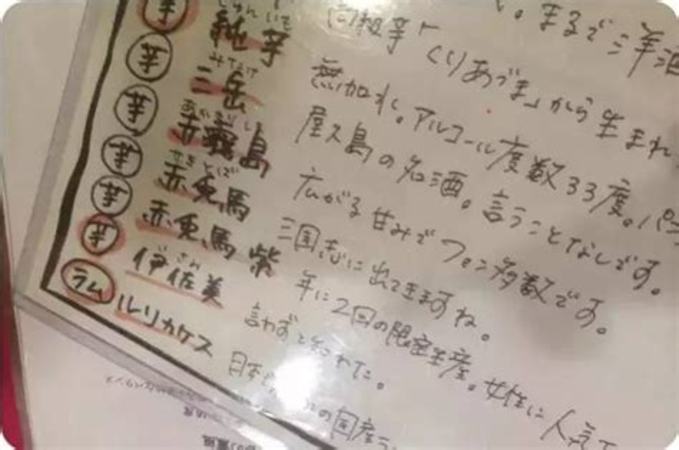 。まるで洋酒
高級芋「くりあづま」から生まれ
芋 純芋 無加水。アルコール度数33度。パ
みたけ
芋 三岳 屋久島の名酒。言うことなしです。
あかきりしま
芋 赤霧島 広がる甘みでファン多数です。
せきとば
芋 赤兎馬 三国志に出てきますね。
芋 赤兎馬 紫 年に2回の限定生産。女性に人気で
いさみ
芋 伊佐美 言わずと知れた。
ラム ルリカケス 日本 の国産ラ